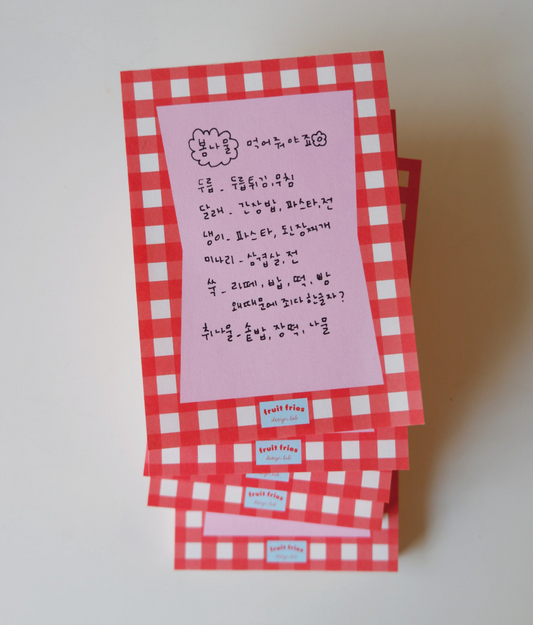 봄나물 먹어줘야죠
두릅 - 두릅튀김, 무침
달래 - 간장밥, 파스타, 전
냉이 - 파스타, 된장찌개
미나리 - 삼겹살, 전
쑥 - 라떼, 밥, 떡, 빵
왜때문에 죄다 한글자?
취나물 - 솥밥, 장떡, 나물
fruit fries
design lab
fruit fries
design lab
fruit fries
design lab
fruit fries
design lab